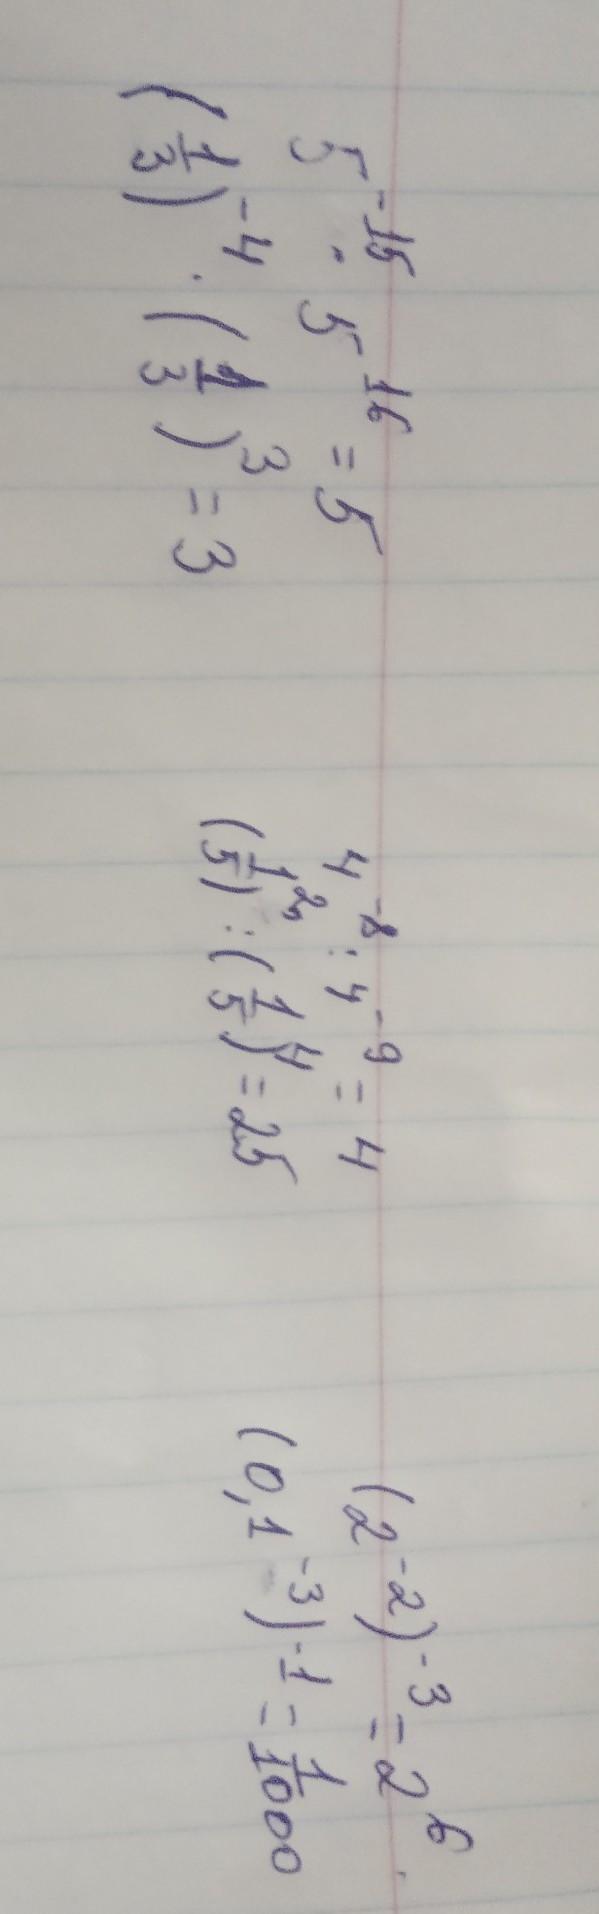 5^{-15} · 5^{16} = 5
(1/3)^{-4} · (1/3)^3 = 3
4^{-8} : 4^{-9} = 4
(1/5)^2 : (1/5)^4 = 25
(2^{-2})^{-3} = 2^6
(0,1^{-3})^{-1} = 1/1000